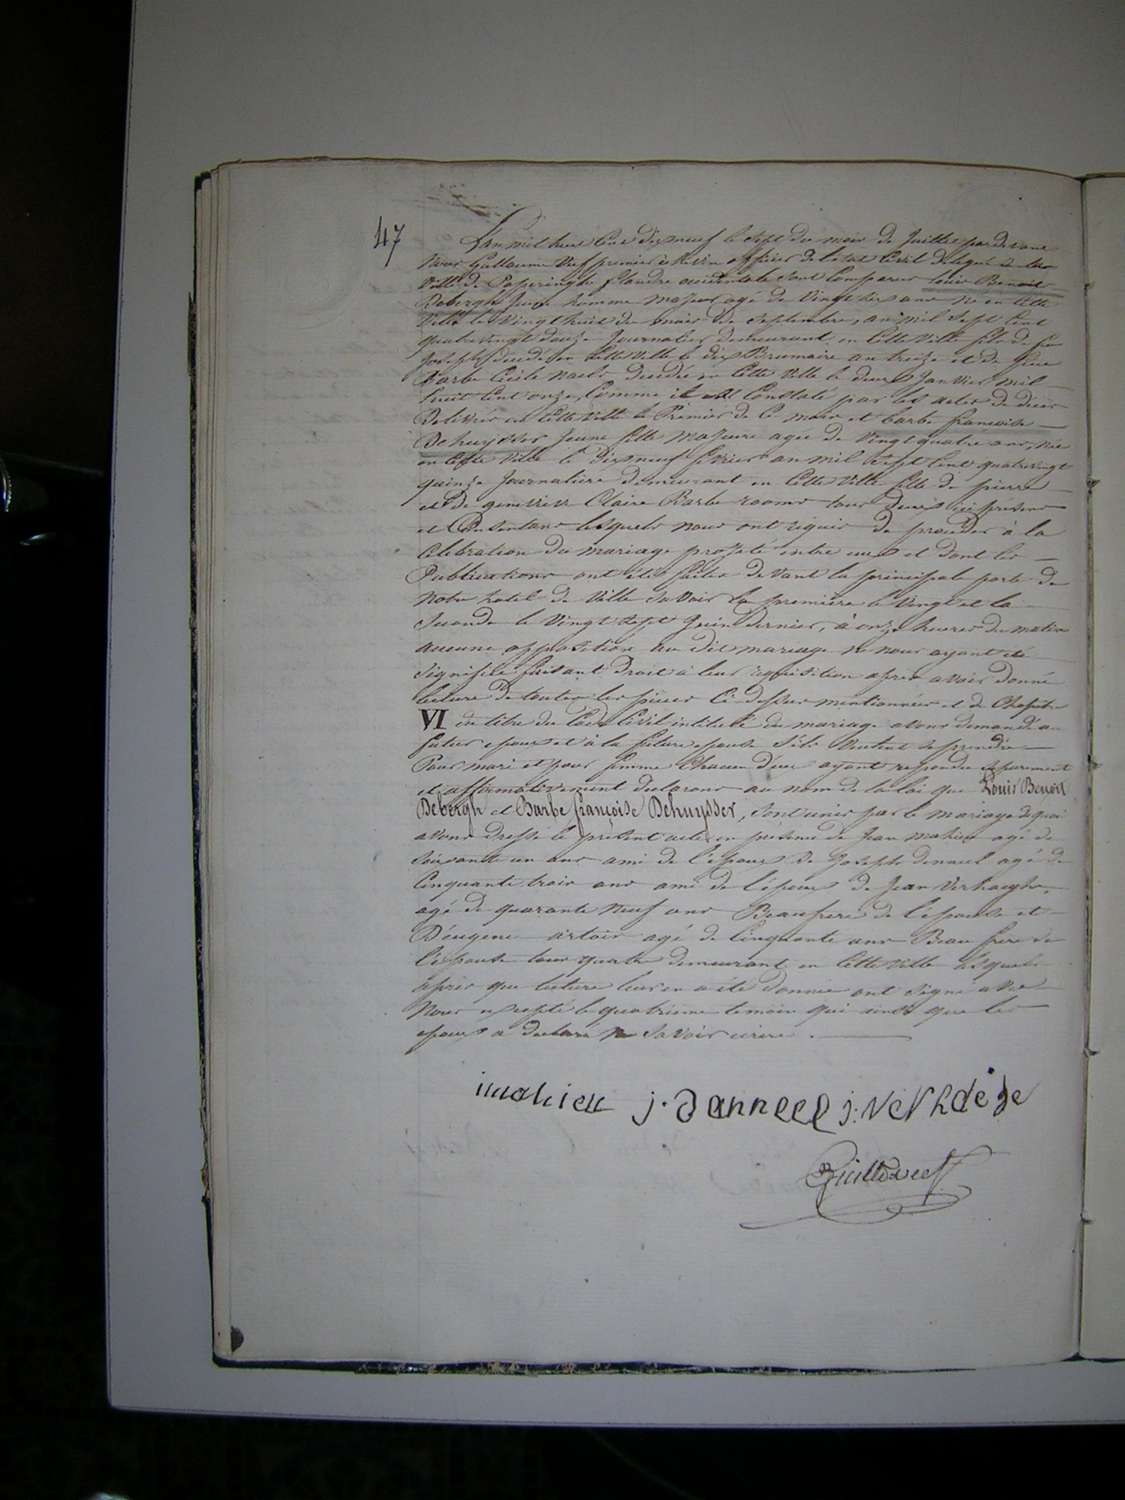 47
L'an mil huit cent dix neuf le sept du mois de Juillet pardevant
Nous Guillaume Veef premier échevin officier de l'état civil délégué de la
ville de Poperinghe flandre occidentale sont comparus Louis Benoit
Debergh jeune homme majeur agé de vingt six ans né en cette
ville le vingt huit du mois de septembre, an mil sept cent
quatrevingt douze Journalier demeurant en cette ville fils de feu
Joseph décédé en cette ville le dix Brumaire an treize et de feue
Barbe Cécile décédée en cette ville le deux Janvier mil
huit cent onze, comme il est constaté par les actes de décès
délivrés en cette ville le Premier de ce mois et barbe françoise
Dehuysser jeune fille majeure agée de vingt quatre ans, née
en cette ville le dix neuf février an mil sept cent quatrevingt
quinze Journaliere demeurant en cette ville fille de pierre
et de genevieve Claire Barbe tous deux ici présens
et Consentans lesquels nous ont requis de procéder à la
Célébration du mariage projeté entre eux et dont les
Publications ont été faites devant la principale porte de
notre hotel de ville savoir la première le vingt et la
seconde le vingt sept Juin dernier, à onze heures du matin
aucune opposition au dit mariage ne nous ayant été
signifiée faisant droit à leur requisition après avoir donné
lecture de toutes les pièces ci-dessus mentionnées et du Chapitre
VI du titre du Code Civil intitulé du mariage avons demandé au
futur époux et à la future épouse s'ils veulent se prendre
Pour mari et pour femme Chacun d'eux ayant repondu séparement
et affirmativement declarons au nom de la loi que Louis Benoit
Debergh et Barbe françoise Dehuysser, sont unis par le mariage de quoi
avons dressé le présent acte en présence de Jean mahieu agé de
soixante un ans ami de l'époux de Joseph agé de
Cinquante trois ans ami de l'époux de Jean Verhaeghe,
agé de quarante neuf ans Beaufrere de l'épouse et
D'eugene artois agé de Cinquante ans Beau frere de
l'épouse tous quatre demeurant en cette ville lesquels
après que lecture leur en a été donnée ont signé avec
Nous excepté le quatrième temoin qui ainsi que les
époux a declaré ne savoir écrire.
imahieu j. danneel j. verhdege
Guille Veef